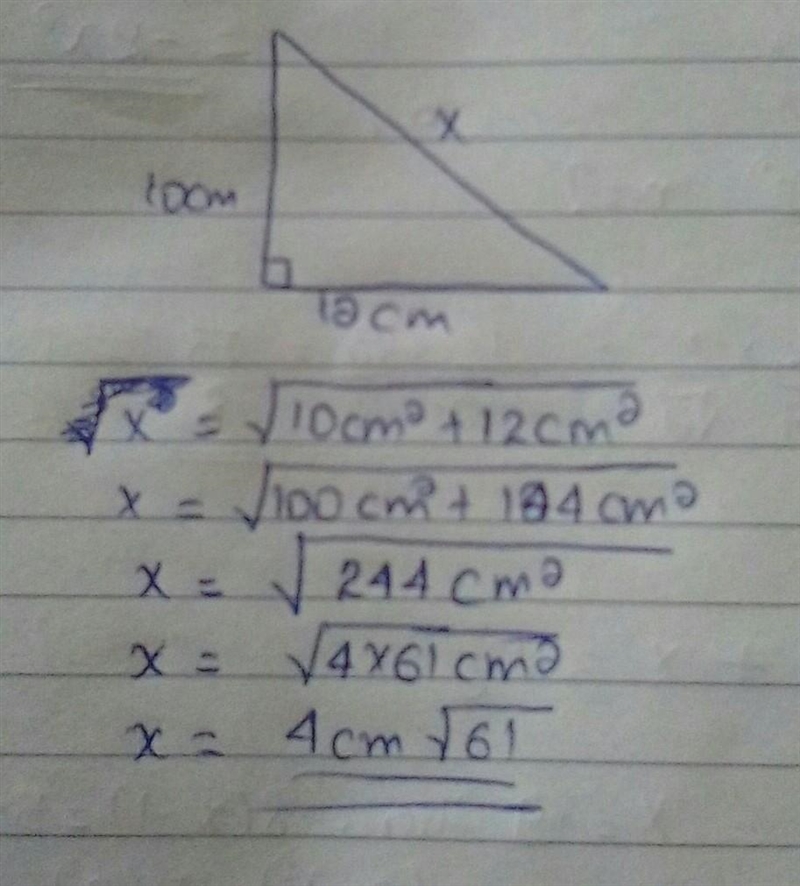 x
10cm
12cm
√x² = √10cm² + 12cm²
x = √100cm² + 144cm²
x = √244cm²
x = √4×61cm²
x = 4cm√61